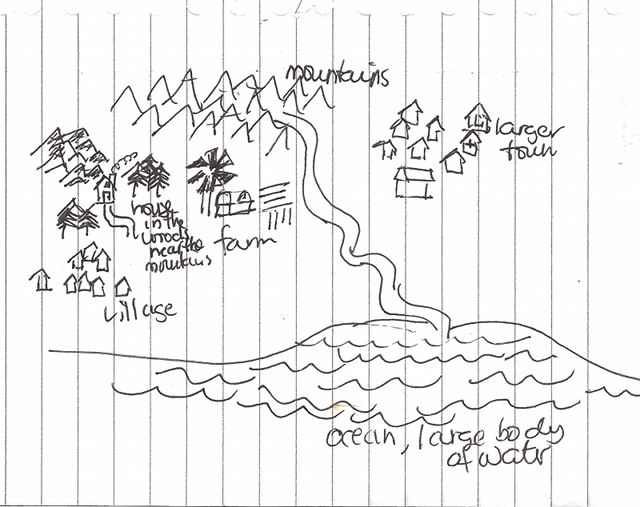 mountains
larger
town
house
in the
woods
near the
mountains
farm
village
ocean, large body
of water